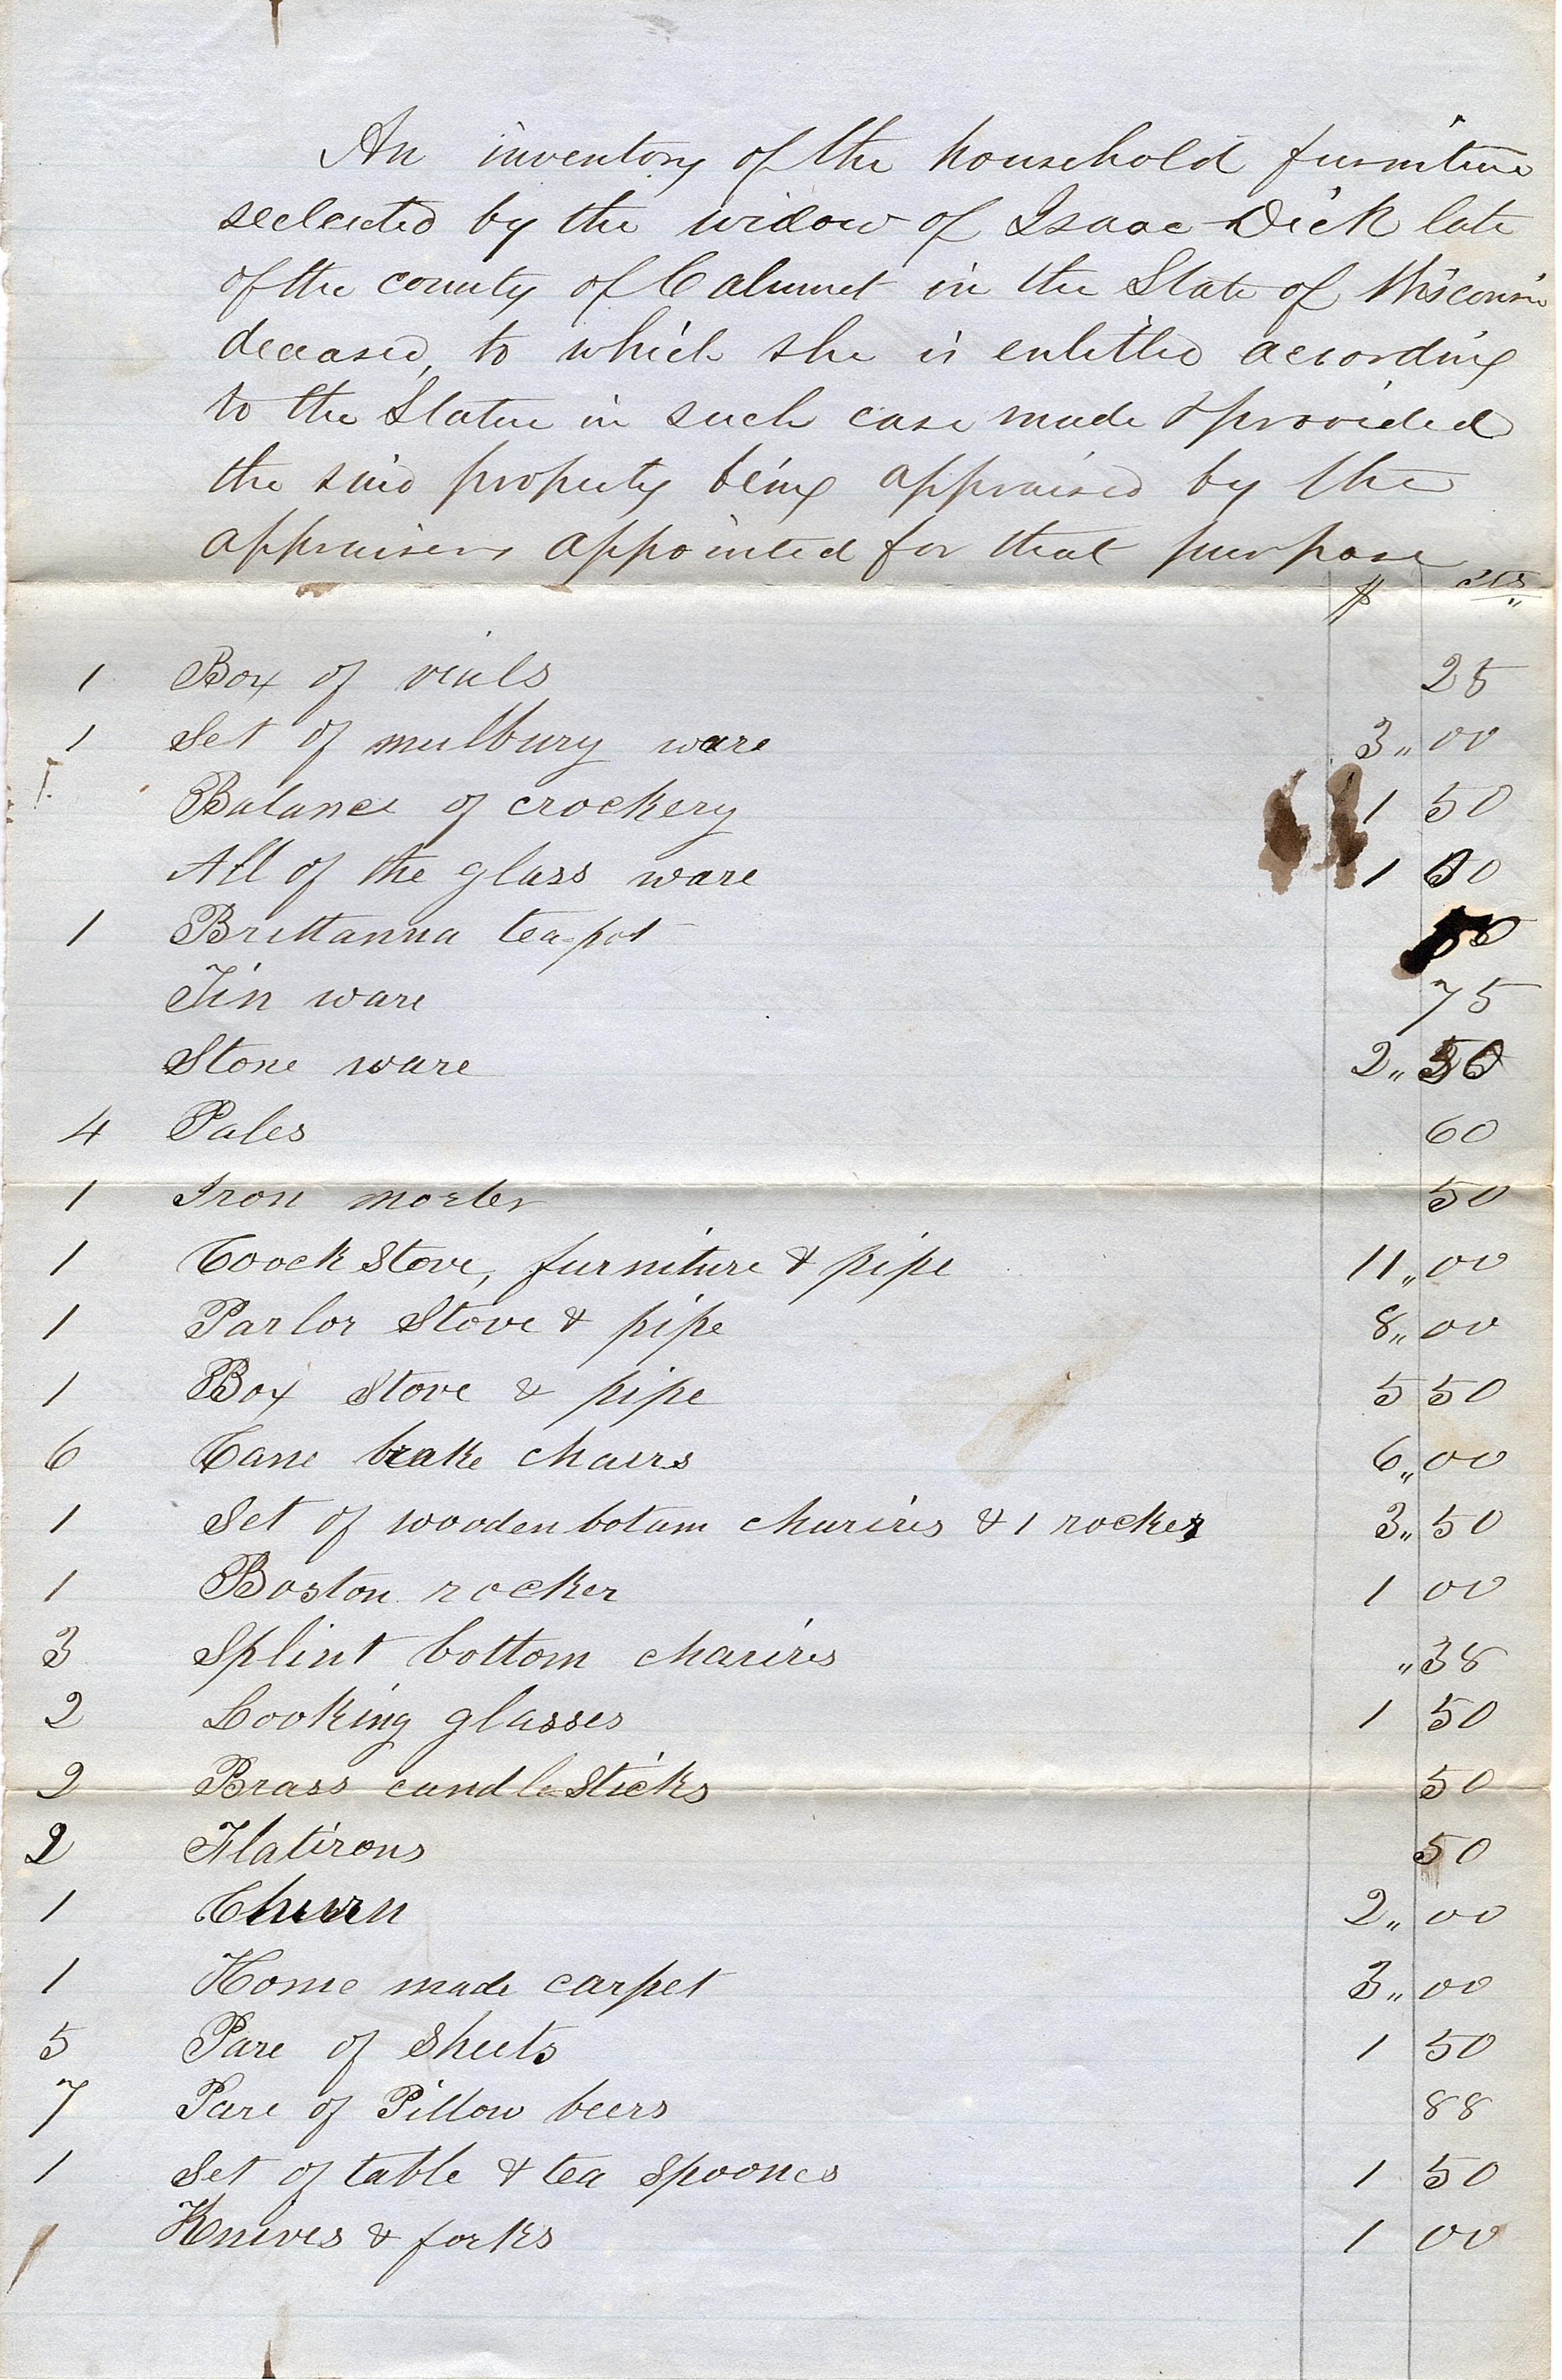 An inventory of the household furniture
seclected by the widow of Isaac Dick late
of the county of Calumet in the State of Wisconsin
deceased, to which she is entitled according
to the Statue in such case made & provided
the said property being appraised by the
appraisers appointed for that purpose
$ cts
1 Box of vials 25
1 Set of mulbury ware 3„ 00
Balance of crockery 1 50
All of the glass ware 1 00
1 Brittanna tea-pot 50
Tin ware 75
Stone ware 2„ 50
4 Pales 60
1 Iron morter 50
1 Coock Stove, furniture & pipe 11„ 00
1 Parlor Stove & pipe 8„ 00
1 Box Stove & pipe 5 50
6 Cane brake chairs 6„ 00
1 Set of wooden botum charirs & 1 rocker 3„ 50
1 Boston rocker 1 00
3 Splint bottom charirs „ 38
2 Looking glasses 1 50
2 Brass candle Sticks 50
2 Flatirons 50
1 Churn 2„ 00
1 Home made carpet 3„ 00
5 Pare of Sheets 1 50
7 Pare of Pillow beers 88
1 Set of table & tea Spoones 1 50
Knives & forks 1 00